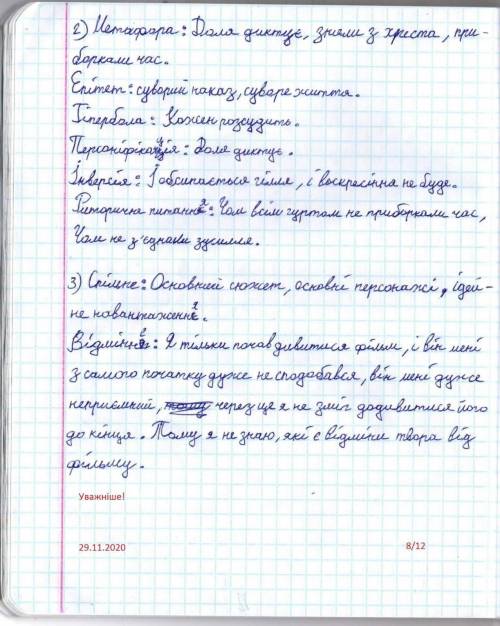 2) Метафора: Доля диктує, зняли з хреста, при-
боркали час.
Епітет: суворий наказ, суваре життя.
Гіпербола: Кожен розсудить.
Персоніфікація: Доля диктує.
Інверсія: І обсипається гілля, і воскресіння не буде.
Риторична питання: Чом всім гуртом не приборкали час,
Чом не з'єднали зусилля.
3) Спільне: Основний сюжет, основні персонажі, ідей-
не навантаження.
Відмінне: Я тільки почав дивитися фільм, і він мені
з самого початку дуже не сподобався, він мені дуже
неприємний, тому через це я не зміг додивитися його
до кінця. Тому я не знаю, які є відміни твора від
фільму.
Уважніше!
29.11.2020 8/12